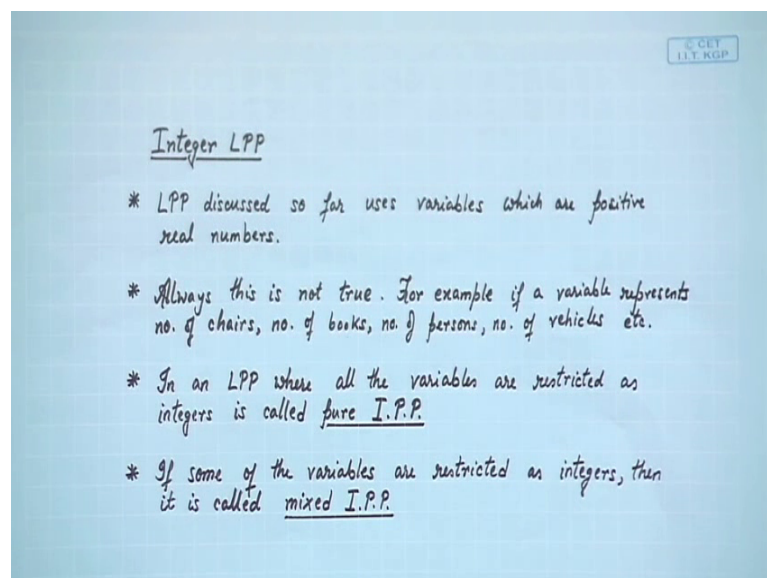 © CET
I.I.T. KGP
Integer LPP
* LPP discussed so far uses variables which are positive
real numbers.
* Always this is not true. For example if a variable represents
no. of chairs, no. of books, no. of persons, no. of vehicles etc.
* In an LPP where all the variables are restricted as
integers is called pure I.P.P.
* If some of the variables are restricted as integers, then
it is called mixed I.P.P.